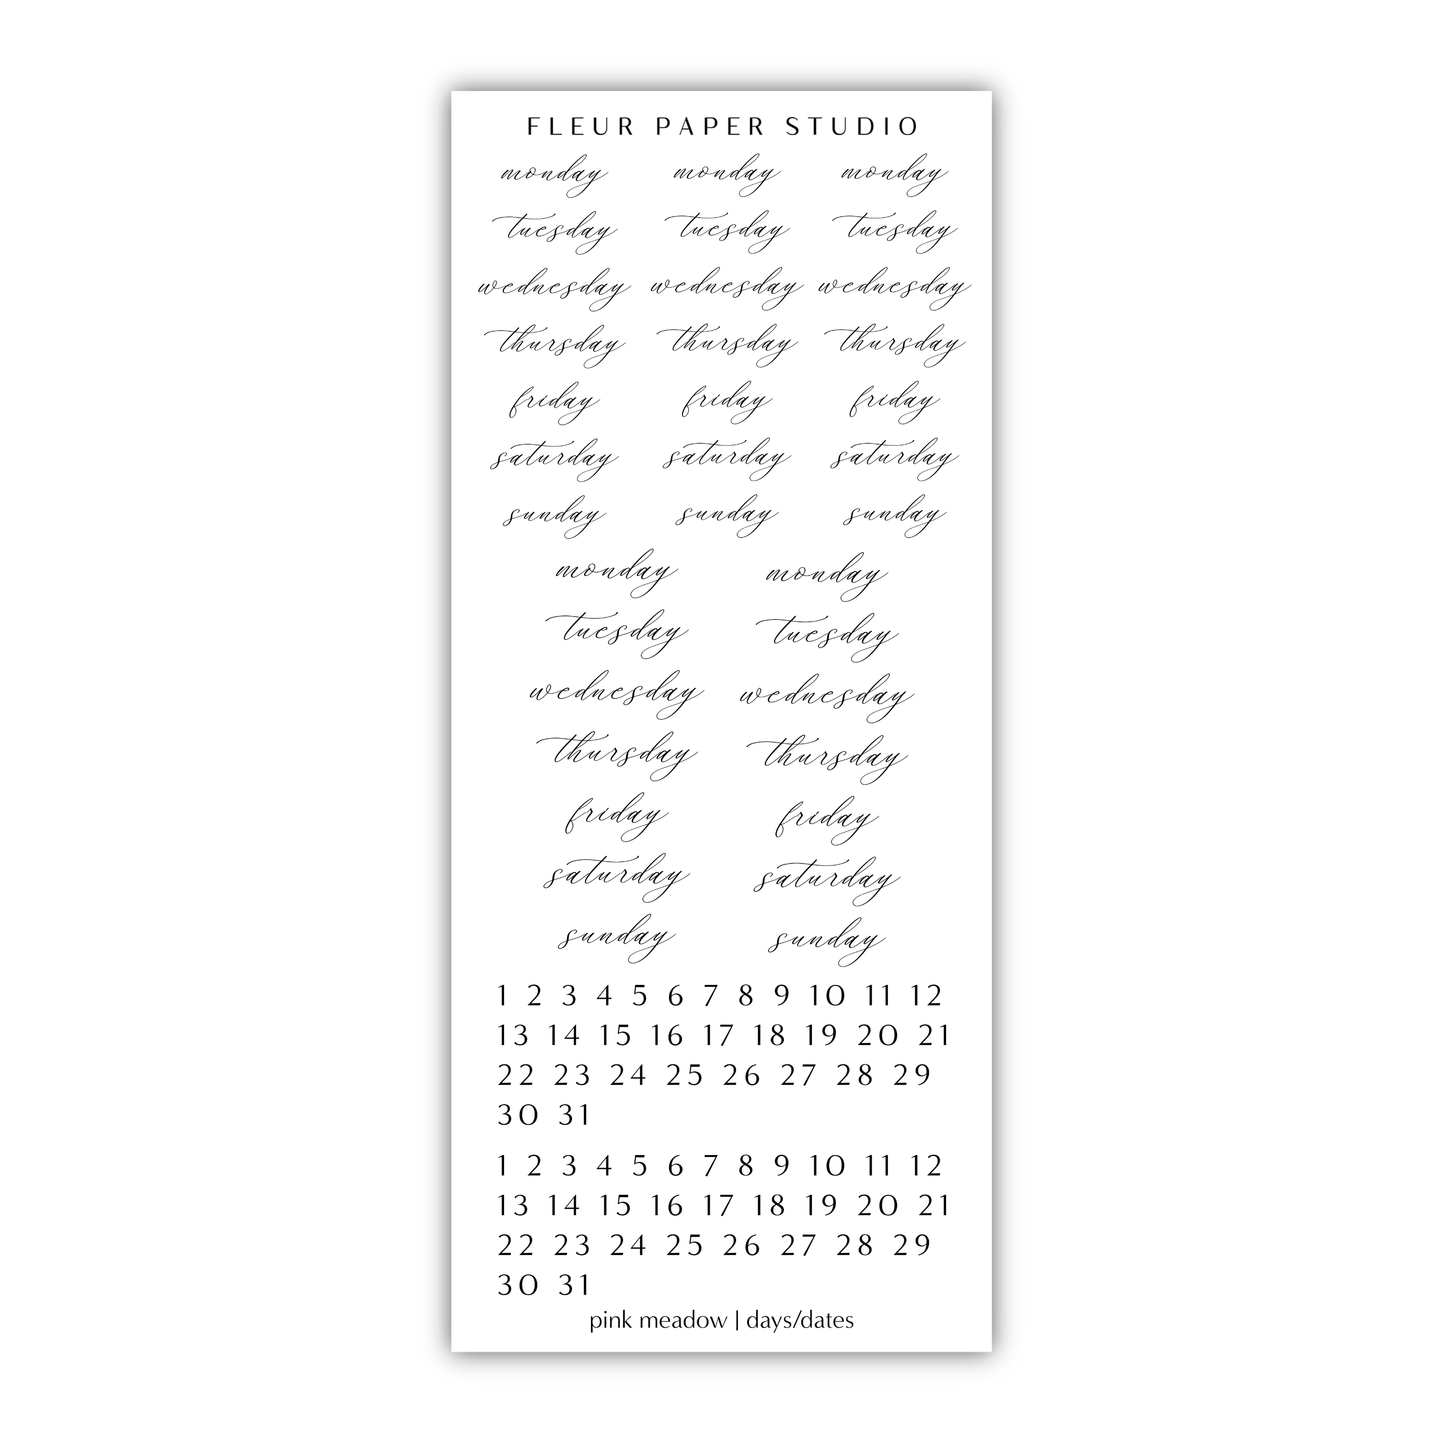 FLEUR PAPER STUDIO
monday monday monday
tuesday tuesday tuesday
wednesday wednesday wednesday
thursday thursday thursday
friday friday friday
saturday saturday saturday
sunday sunday sunday
monday monday
tuesday tuesday
wednesday wednesday
thursday thursday
friday friday
saturday saturday
sunday sunday
1 2 3 4 5 6 7 8 9 10 11 12
13 14 15 16 17 18 19 20 21
22 23 24 25 26 27 28 29
30 31
1 2 3 4 5 6 7 8 9 10 11 12
13 14 15 16 17 18 19 20 21
22 23 24 25 26 27 28 29
30 31
pink meadow | days/dates